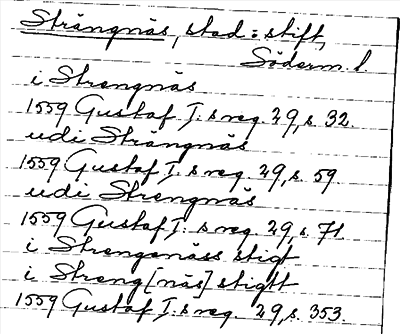 Strängnäs, stad o. stift,
Söderm. l.
i Strengnäs
1559 Gustaf I:s reg. 29, s. 32.
udi Strängnäs
1559 Gustaf I:s reg. 29, s. 59.
udi Strengnäs
1559 Gustaf I:s reg. 29, s. 71
i Strengenäss stigt
i Streng[näs] stigtt
1559 Gustaf I:s reg. 29, s. 353.